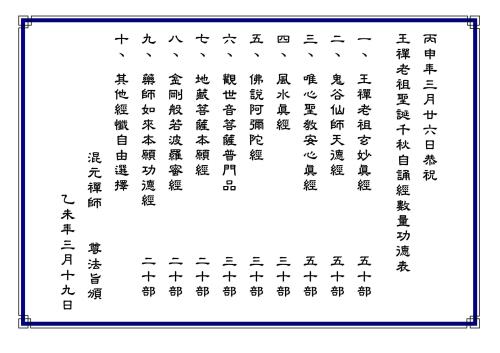 丙申年三月廿六日恭祝
王禪老祖聖誕千秋自誦經數量功德表
一、王禪老祖玄妙眞經 五十部
二、鬼谷仙師天德經 五十部
三、唯心聖教安心眞經 五十部
四、風水眞經 三十部
五、佛說阿彌陀經 三十部
六、觀世音菩薩普門品 三十部
七、地藏菩薩本願經 二十部
八、金剛般若波羅蜜經 二十部
九、藥師如來本願功德經 二十部
十、其他經懺自由選擇
混元禪師 尊法旨頒
乙未年三月十九日